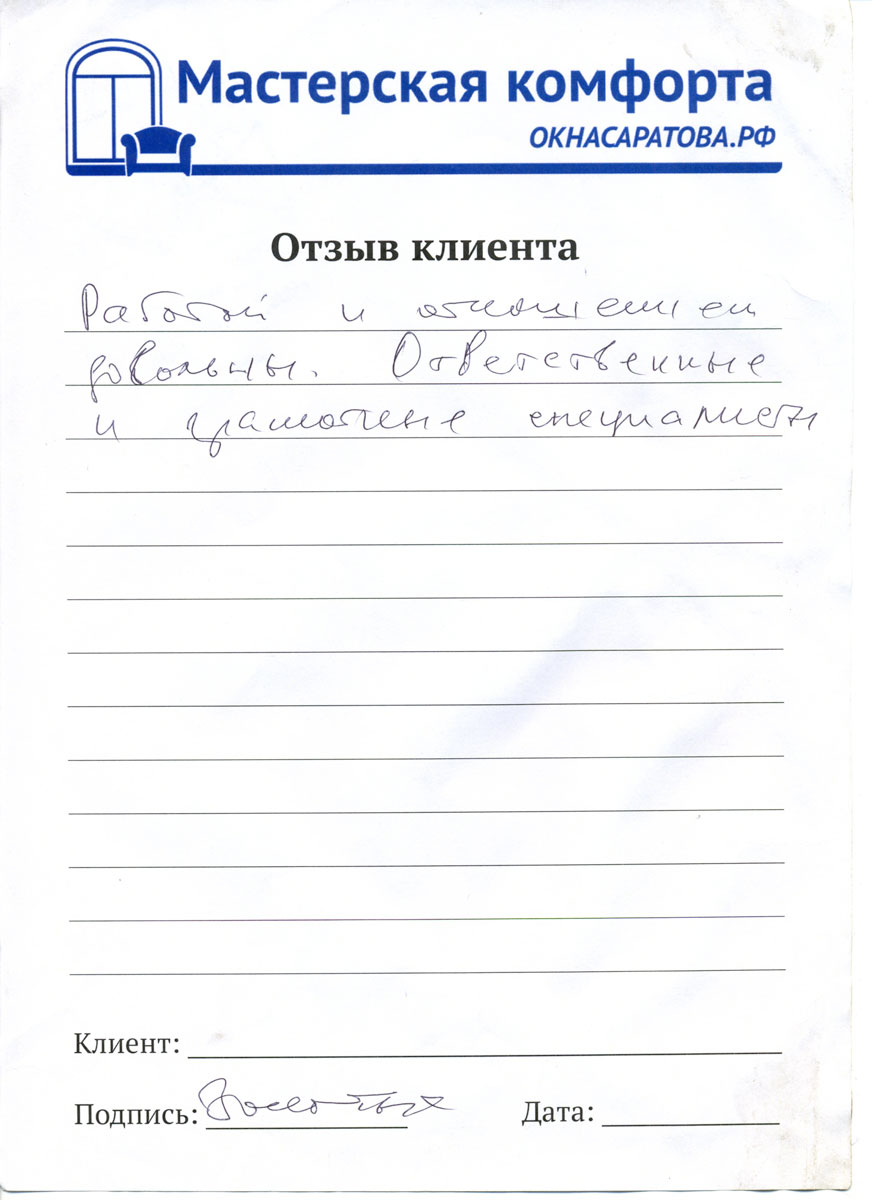 Мастерская комфорта
ОКНАСАРАТОВА.РФ
Отзыв клиента
Работой и отношением
довольны. Ответственные
и грамотные специалисты
Клиент:
Подпись:
Дата: